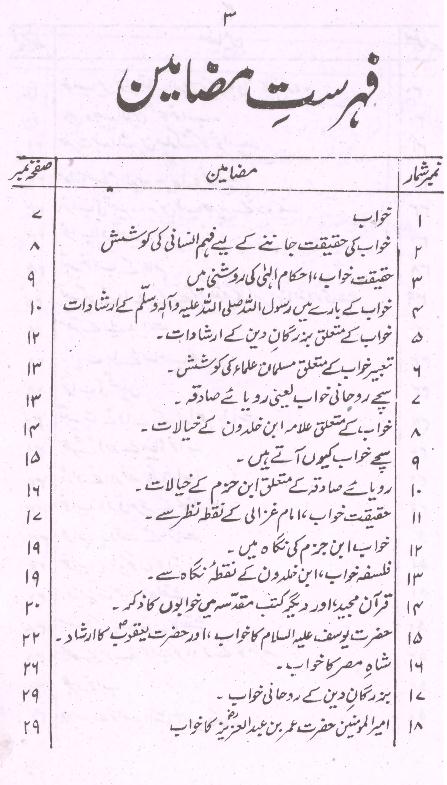 ۳
فہرستِ مضامین
نمبر شمار مضامین صفحہ نمبر
۱ خواب ۷
۲ خواب کی حقیقت جاننے کے لیے فہم انسانی کی کوشش ۸
۳ حقیقت خواب، احکام الٰہی کی روشنی میں ۹
۴ خواب کے بارے میں رسول اللہ صلی اللہ علیہ وآلہ وسلّم کے ارشادات ۱۰
۵ خواب کے متعلق بزرگانِ دین کے ارشادات۔ ۱۲
۶ تعبیر خواب کے متعلق مسلمان علماء کی کوشش۔ ۱۳
۷ سچے روحانی خواب یعنی رویائے صادقہ۔ ۱۳
۸ خواب کے متعلق علامہ ابن خلدون کے خیالات۔ ۱۴
۹ سچے خواب کیوں آتے ہیں۔ ۱۵
۱۰ رویائے صادقہ کے متعلق ابن حزم کے خیالات۔ ۱۶
۱۱ حقیقت خواب، امام غزالی کے نقطہ نظر سے۔ ۱۷
۱۲ خواب، ابن حزم کی نگاہ میں۔ ۱۹
۱۳ فلسفہ خواب، ابن خلدون کے نقطۂ نگاہ سے۔ ۱۹
۱۴ قرآن مجید، اور دیگر کتب مقدسہ میں خوابوں کا ذکر۔ ۲۰
۱۵ حضرت یوسف علیہ السلام کا خواب، اور حضرت یعقوبؑ کا ارشاد۔ ۲۲
۱۶ شاہِ مصر کا خواب۔ ۲۶
۱۷ بزرگانِ دین کے روحانی خواب۔ ۲۹
۱۸ امیر المومنین حضرت عمر بن عبدالعزیزؓ کا خواب ۲۹